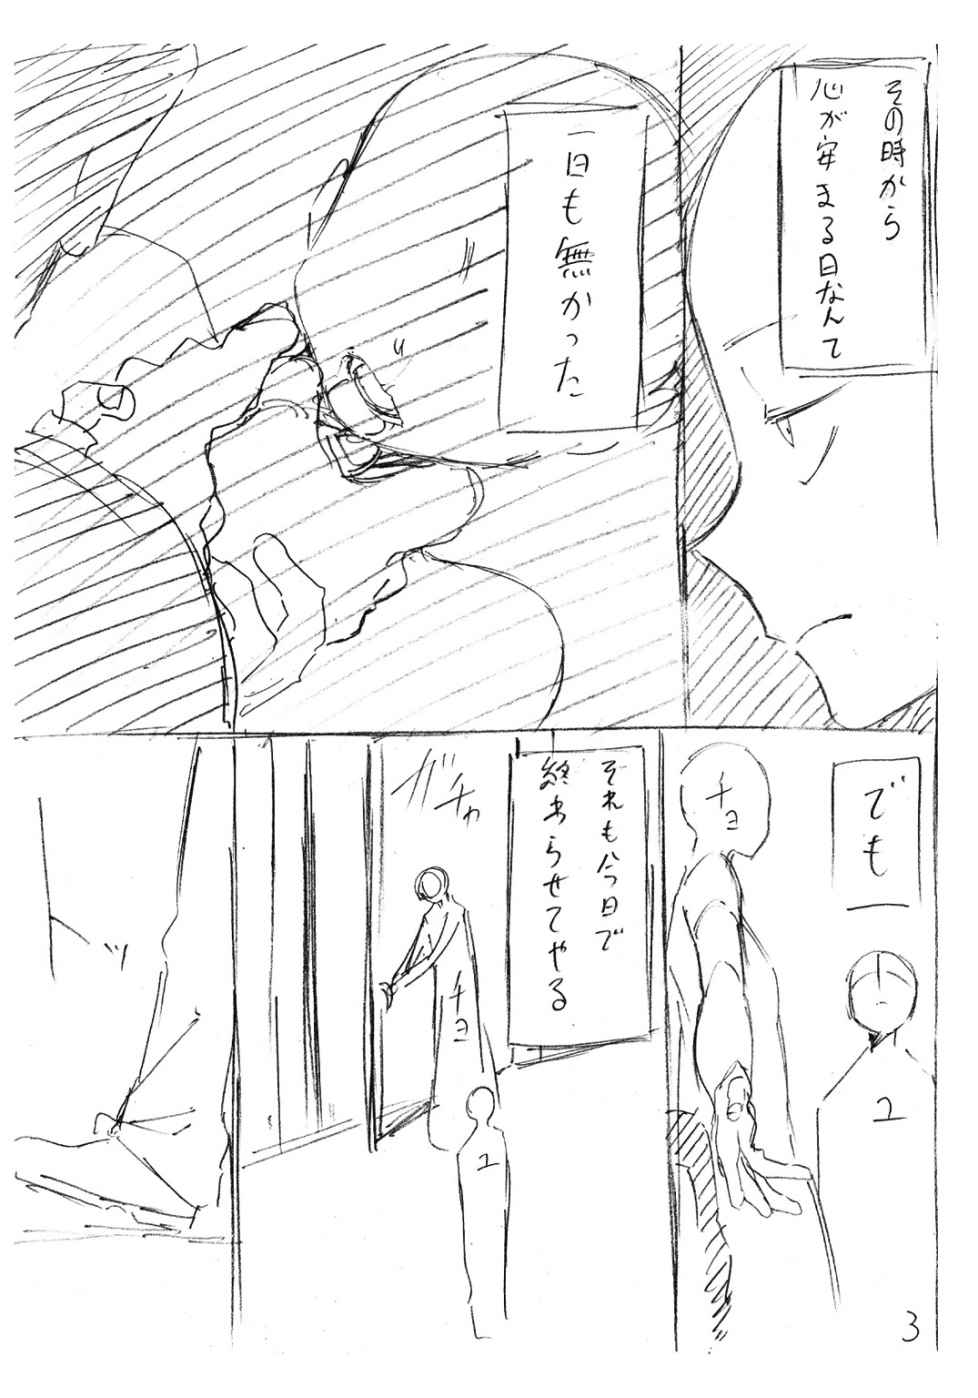 その時から
心が安まる日なんて
一日も無かった
でも―
チヨ
ユ
それも今日で
終わらせてやる
ガチャ
チヨ
ユ
3